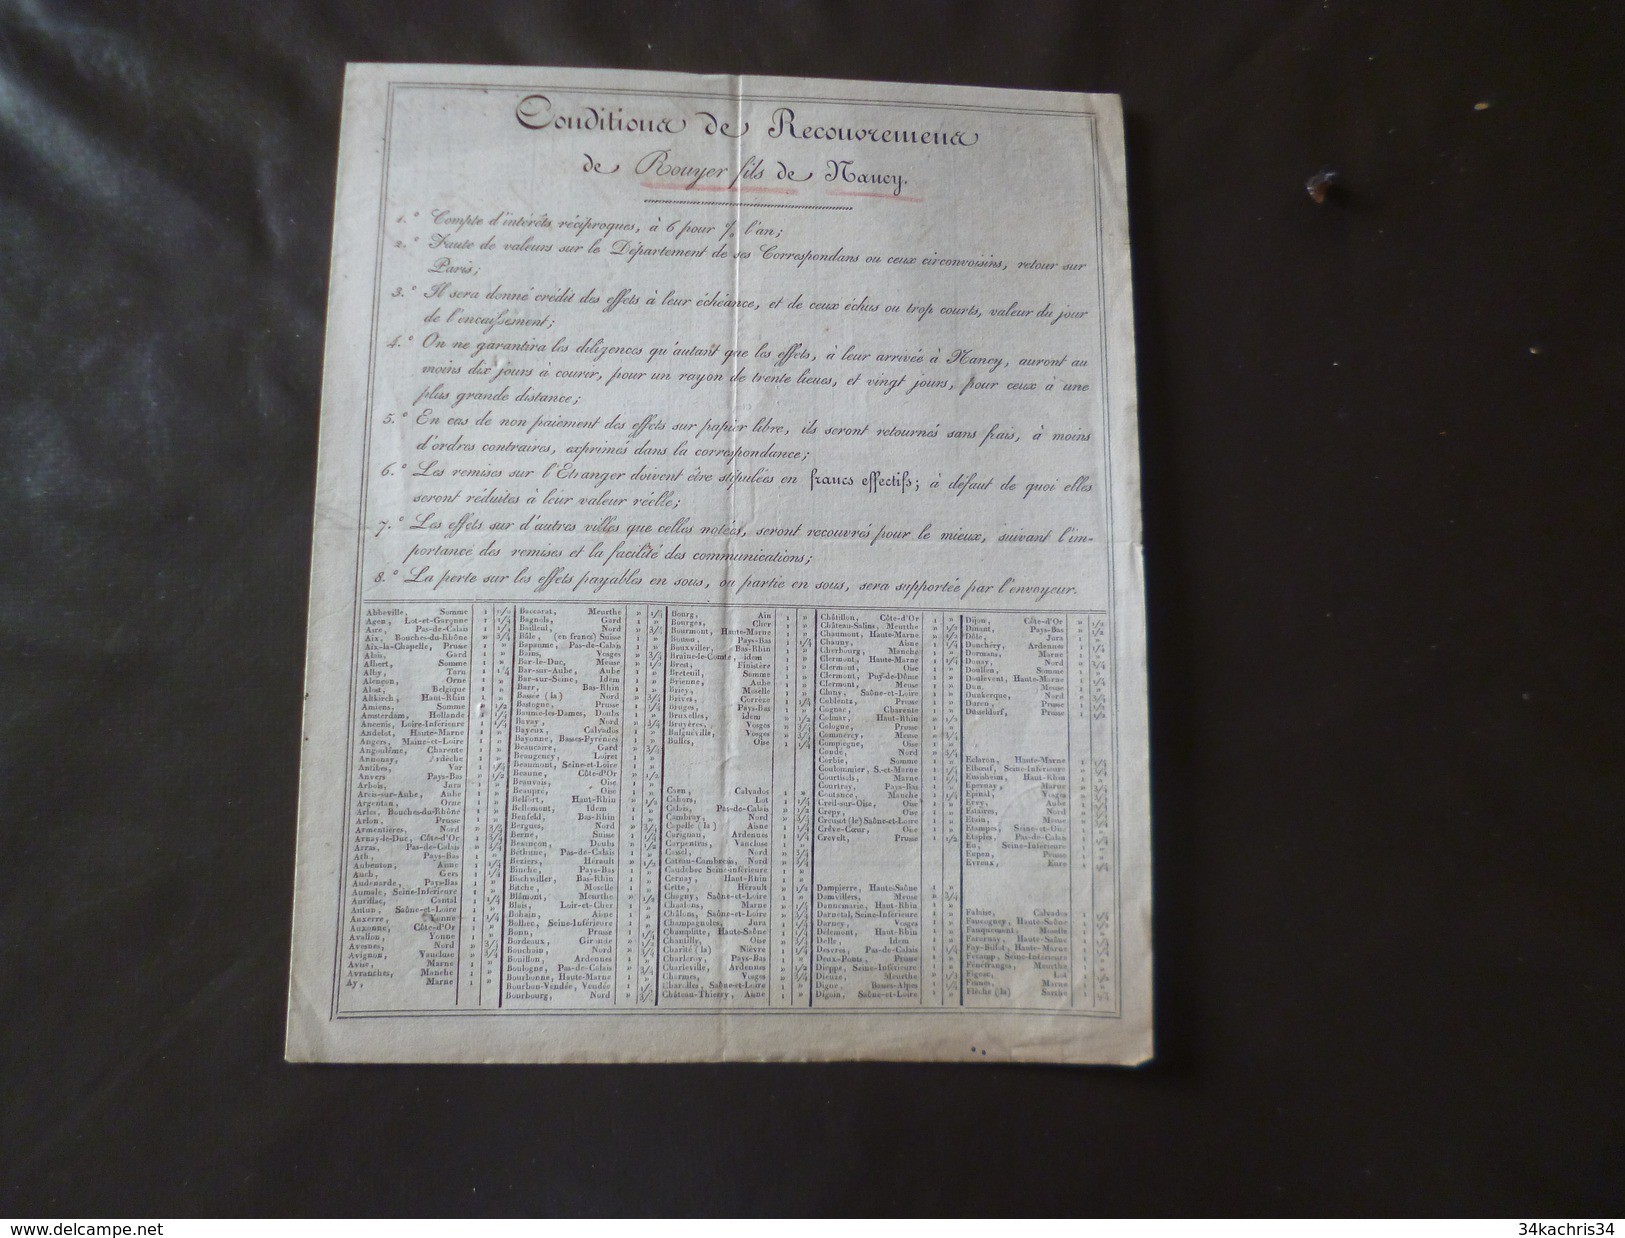 Conditions de Recouvremens
de Rouyer fils de Nancy.
1.° Compte d'intérêts réciproques, à 6 pour % l'an;
2.° Faute de valeurs sur le Département de ses Correspondans ou ceux circonvoisins, retour sur
Paris;
3.° Il sera donné crédit des effets à leur échéance, et de ceux échus ou trop courts, valeur du jour
de l'encaissement;
4.° On ne garantira les diligences qu'autant que les effets, à leur arrivée à Nancy, auront au
moins dix jours à courir, pour un rayon de trente lieues, et vingt jours, pour ceux à une
plus grande distance;
5.° En cas de non paiement des effets sur papier libre, ils seront retournés sans frais, à moins
d'ordres contraires, exprimés dans la correspondance;
6.° Les remises sur l'Etranger doivent être stipulées en francs effectifs; à défaut de quoi elles
seront réduites à leur valeur réelle;
7.° Les effets sur d'autres villes que celles notées, seront recouvrés pour le mieux, suivant l'im-
portance des remises et la facilité des communications;
8.° La perte sur les effets payables en sous, ou partie en sous, sera supportée par l'envoyeur.
Abbeville, Somme
Agen, Lot-et-Garonne
Aire, Pas-de-Calais
Aix, Bouches-du-Rhône
Aix-la-Chapelle, Prusse
Alais, Gard
Albert, Somme
Alby, Tarn
Alençon, Orne
Alost, Belgique
Altkirch, Haut-Rhin
Amiens, Somme
Amsterdam, Hollande
Ancenis, Loire-Inférieure
Andelot, Haute-Marne
Angers, Maine-et-Loire
Angoulême, Charente
Annonay, Ardèche
Antibes, Var
Anvers Pays-Bas
Arbois, Jura
Arcis-sur-Aube, Aube
Argentan, Orne
Arles, Bouches-du-Rhône
Arlon, Prusse
Armentières, Nord
Arnay-le-Duc, Côte-d'Or
Arras, Pas-de-Calais
Ath, Pays-Bas
Aubenton, Aisne
Auch, Gers
Audenarde, Pays-Bas
Aumale, Seine-Inférieure
Aurillac, Cantal
Autun, Saône-et-Loire
Auxerre, Yonne
Auxonne, Côte-d'Or
Avallon, Yonne
Avesne, Nord
Avignon, Vaucluse
Avise, Marne
Avranches, Manche
Ay, Marne
Baccarat, Meurthe
Bagnols, Gard
Bailleul, Nord
Bâle, (en francs) Suisse
Bapaume, Pas-de-Calais
Bains, Vosges
Bar-le-Duc, Meuse
Bar-sur-Aube, Aube
Bar-sur-Seine, Idem
Barr, Bas-Rhin
Bassée (la) Nord
Bastogne, Prusse
Baume-les-Dames, Doubs
Bavay, Nord
Bayeux, Calvados
Bayonne, Basses-Pyrénées
Beaucaire, Gard
Beaugency, Loiret
Beaumont, Seine-et-Loire
Beaune, Côte-d'Or
Beauvais, Oise
Beaupré, Oise
Belfort, Haut-Rhin
Bellemont, Idem
Benfeld, Bas-Rhin
Bergues, Nord
Berne, Suisse
Besançon, Doubs
Béthune, Pas-de-Calais
Béziers, Hérault
Binche, Pays-Bas
Bischwiller, Bas-Rhin
Bitche, Moselle
Blâmont, Meurthe
Blois, Loir-et-Cher
Bohain, Aisne
Bolbec, Seine-Inférieure
Bonn, Prusse
Bordeaux, Gironde
Bouchain, Nord
Bouillon, Ardennes
Boulogne, Pas-de-Calais
Bourbonne, Haute-Marne
Bourbon-Vendée, Vendée
Bourbourg, Nord
Bourg, Ain
Bourges, Cher
Bourmont, Haute-Marne
Boussu, Pays-Bas
Bouxviller, Bas-Rhin
Braine-le-Comte, idem
Brest, Finistère
Breteuil, Somme
Brienne, Aube
Briey, Moselle
Brives, Corrèze
Bruges, Pays-Bas
Bruxelles, Idem
Bruyères, Vosges
Bulgnéville, Vosges
Bulles, Oise
Caen, Calvados
Cahors, Lot
Calais, Pas-de-Calais
Cambray, Nord
Capelle (la) Aisne
Carignan, Ardennes
Carpentras, Vaucluse
Cassel, Nord
Cateau-Cambresis, Nord
Caudebec Seine-inférieure
Cernay, Haut-Rhin
Cette, Hérault
Chagny, Saône-et-Loire
Chaalons, Marne
Châlons, Saône-et-Loire
Champagnoles, Jura
Champlitte, Haute-Saône
Chantilly, Oise
Charité (la) Nièvre
Charleroy, Pays-Bas
Charleville, Ardennes
Charmes, Vosges
Charolles, Saône-et-Loire
Château-Thierry, Aisne
Châtillon, Côte-d'Or
Château-Salins, Meurthe
Chaumont, Haute-Marne
Chauny, Aisne
Cherbourg, Manche
Clermont, Haute-Marne
Clermont, Oise
Clermont, Puy-de-Dôme
Clermont, Meuse
Cluny, Saône-et-Loire
Coblentz, Prusse
Cognac, Charente
Colmar, Haut-Rhin
Cologne, Prusse
Commercy, Meuse
Compiègne, Oise
Condé, Nord
Corbie, Somme
Coulommier, S.-et-Marne
Courtisols, Marne
Courtray, Pays-Bas
Coutance, Manche
Creil-sur-Oise, Oise
Crepy, Oise
Creusot (le) Saône-et-Loire
Crève-Cœur, Oise
Crevelt, Prusse
Dampierre, Haute-Saône
Damvillers, Meuse
Dannemarie, Haut-Rhin
Darnetal, Seine-Inférieure
Darney, Vosges
Délemont, Haut-Rhin
Delle, Idem
Desvres, Pas-de-Calais
Deux-Ponts, Prusse
Dieppe, Seine-Inférieure
Dieuze, Meurthe
Digne, Basses-Alpes
Digoin, Saône-et-Loire
Dijon, Côte-d'Or
Dinant, Pays-Bas
Dôle, Jura
Donchéry, Ardennes
Dormans, Marne
Douay, Nord
Doullen, Somme
Doulevent, Haute-Marne
Dun, Meuse
Dunkerque, Nord
Duren, Prusse
Düsseldorf, Prusse
Eclaron, Haute-Marne
Elbeuf, Seine-Inférieure
Ensisheim, Haut-Rhin
Epernay, Marne
Epinal, Vosges
Ervy, Aube
Estaires, Nord
Etain, Meuse
Etampes, Seine-et-Oise
Etaples, Pas-de-Calais
Eu, Seine-Inférieure
Eupen, Prusse
Evreux, Eure
Falaise, Calvados
Faucogney, Haute-Saône
Fauquemont, Moselle
Faverney, Haute-Saône
Fay-Billot, Haute-Marne
Fécamp, Seine-Inférieure
Fénétranges, Meurthe
Figeac, Lot
Fismes, Marne
Flèche (la) Sarthe
www.delcampe.net
34kachris34